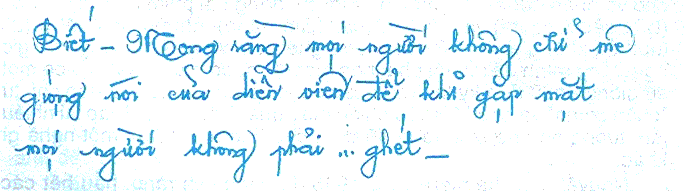 Biết - Mong rằng mọi người không chỉ mê
giọng nói của diễn viên để khi gặp mặt
mọi người không phải ... ghét -